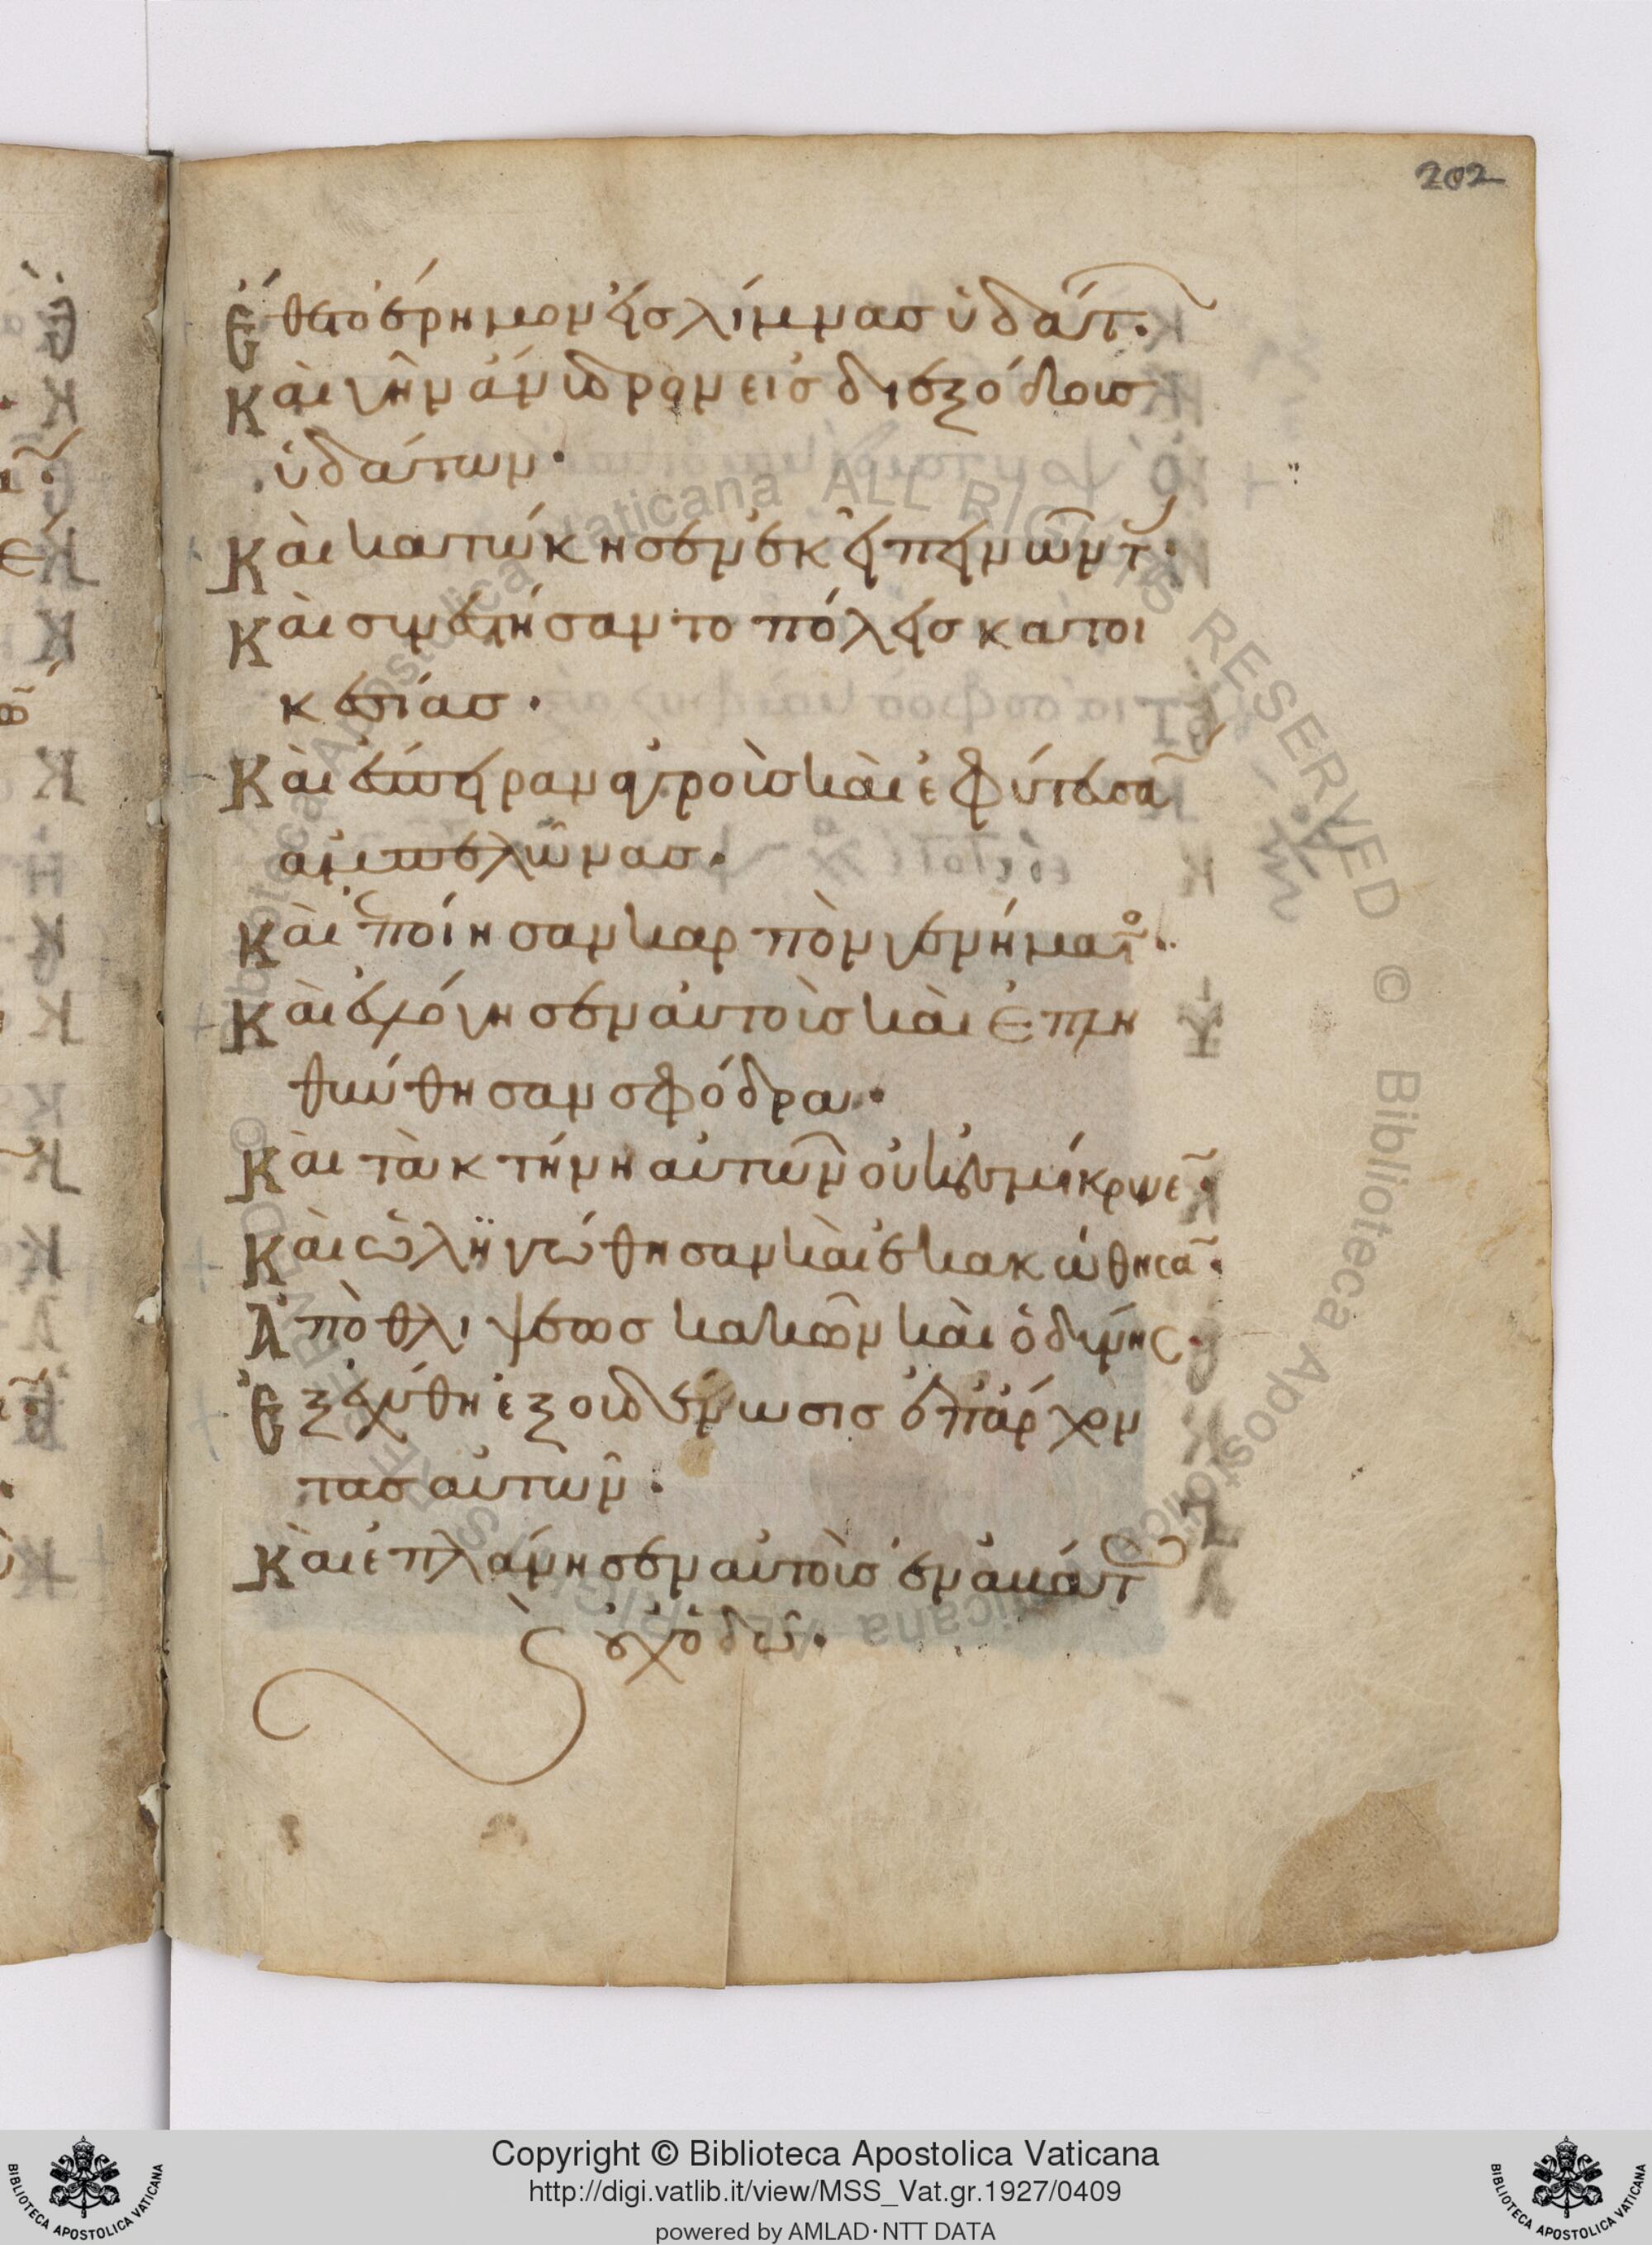 202
Ἔθετο ἔρημον εἰς λίμνας ὑδάτ.
Καὶ γῆν ἄνυδρον εἰς διεξόδους
ὑδάτων.
Καὶ κατώκησεν ἐκεῖ πεινῶντ.
Καὶ συνεστήσαντο πόλεις κατοι
κεσίας.
Καὶ ἔσπειραν ἀγροὺς καὶ ἐφύτευσα
ἀμπελῶνας.
Καὶ ἐποίησαν καρπὸν γενήματο.
Καὶ εὐλόγησεν αὐτοὺς καὶ ἐπλη
θύνθησαν σφόδρα.
Καὶ τὰ κτήνη αὐτῶν οὐκ ἐσμίκρυνε.
Καὶ ὠλιγώθησαν καὶ ἐκακώθησα.
Ἀπὸ θλίψεως κακῶν καὶ ὀδύνης.
Ἐξεχύθη ἐξουδένωσις ἐπ' ἄρχον
τας αὐτῶν.
Καὶ ἐπλάνησεν αὐτοὺς ἐν ἀβάτ
καὶ οὐχ ὁδῷ.
Copyright © Biblioteca Apostolica Vaticana
http://digi.vatlib.it/view/MSS_Vat.gr.1927/0409
powered by AMLAD·NTT DATA
BIBLIOTECA APOSTOLICA VATICANA
BIBLIOTECA APOSTOLICA VATICANA